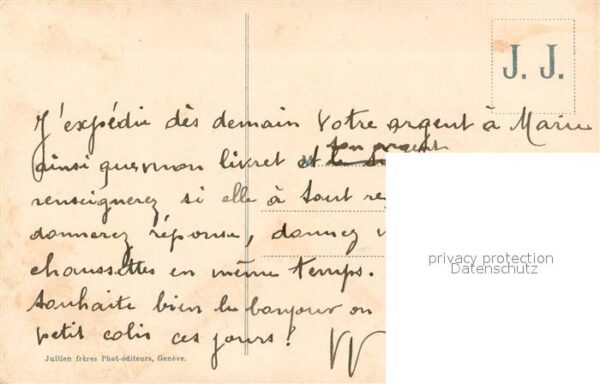 J. J.
J'expédie dès demain votre argent à Marie
son argent
ainsi que mon livret et le
renseignerez si elle à tout re
donnerez réponse, donnez
chaussettes en même temps.
souhaite bien le bonjour on
petit colis ces jours!
Jullien frères Phot-éditeurs, Genève.
privacy protection
Datenschutz